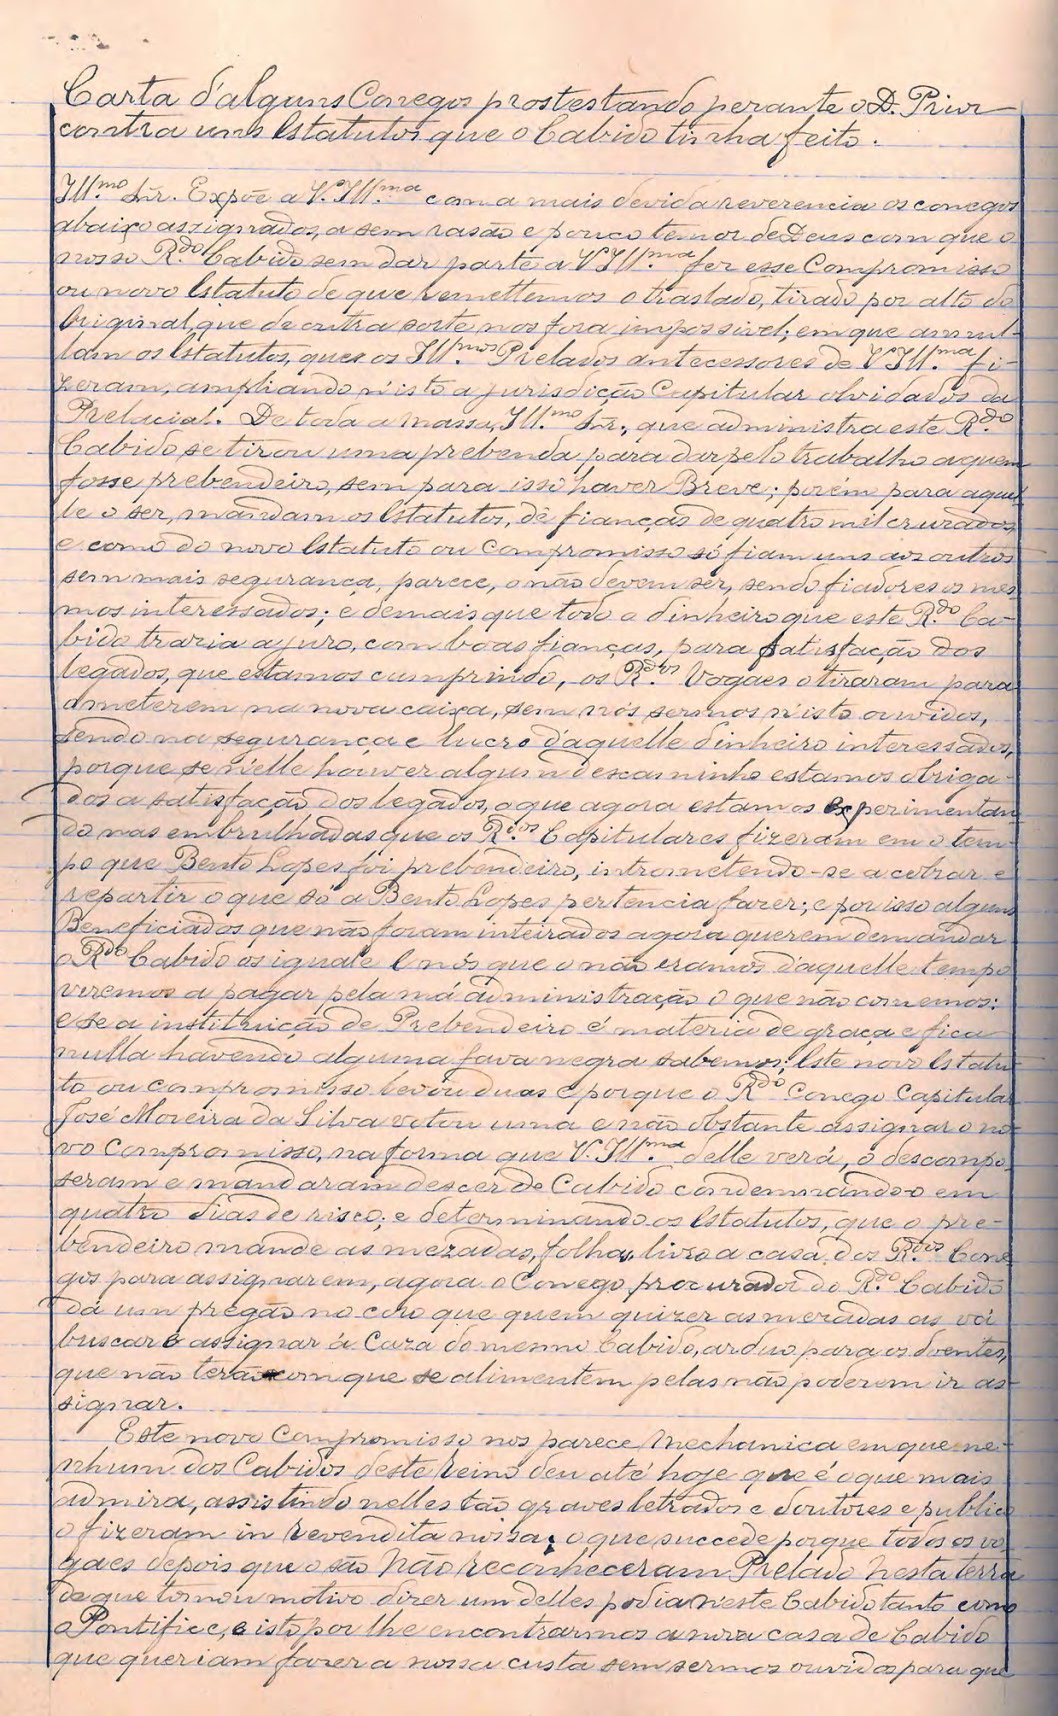 Carta d'alguns Conegos prostestando perante o D. Prior
contra uns Estatutos que o Cabido tinha feito.
Ill.mo Snr. Expõe a V. Ill.ma com a mais devida reverencia os conegos
abaixo assignados, a sem rasão e pouco temor de Deus com que o
nosso R.do Cabido sem dar parte a V Ill.ma fez esse Compromisso
ou novo Estatuto de que remettemos o traslado, tirado por alto do
Original, que de outra sorte nos fora impossivel; em que annul-
lam os Estatutos, que os Ill.mos Prelados antecessores de V Ill.ma fi-
zeram, ampliando n'isto a jurisdição Capitular olvidados da
Prelacial. De toda a massa, Ill.mo Snr., que administra este R.do
Cabido se tirou uma prebenda para dar pelo trabalho a quem
fosse prebendeiro, sem para isso haver Breve; porém para aquel-
le o ser, mandam os Estatutos, dê fianças de quatro mil cruzados,
e como do novo Estatuto ou compromisso só fiam uns aos outros
sem mais segurança, parece, o não devem ser, sendo fiadores os mes-
mos interessados; e demais que todo o dinheiro que este R.do Ca-
bido trazia a juro, com boas fianças, para satisfação dos
legados, que estamos cumprindo, os R.dos Vogaes o tiraram para
o meterem na nova caixa, sem nós sermos n'isto ouvidos,
sendo na segurança e lucro d'aquelle dinheiro interessados,
porque se n'elle houver algum descaminho estamos obriga-
dos a satisfação dos legados, o que agora estamos experimentan-
do nas embrulhadas que os R.dos Capitulares fizeram em o tem-
po que Bento Lopes foi prebendeiro, intrometendo-se a cobrar e
repartir o que só a Bento Lopes pertencia fazer; e por isso alguns
Beneficiados que não foram inteirados agora querem demandar
o R.do Cabido os iguale e nós que o não eramos d'aquelle tempo
viremos a pagar pela má administração o que não comemos:
e se a instituição de Prebendeiro é materia de graça e fica
nulla havendo alguma fava negra sabemos: Este novo Estatu-
to ou compromisso levou duas e porque o R.do Conego Capitular
José Moreira da Silva votou uma e não obstante assignar o no-
vo compromisso, na forma que V. Ill.ma delle verá, o descompo-
seram e mandaram descer do Cabido condemnando-o em
quatro dias de risco; e determinando os Estatutos, que o pre-
bendeiro mande as mezadas, folha, livro a casa dos R.dos Cone-
gos para assignarem, agora o Conego procurador do R.do Cabido
dá um pregão no coro que quem quizer as mezadas as vá
buscar e assignar á Caza do mesmo Cabido, arduo para os doentes,
que não terão com que se alimentem pelas não poderem ir as-
signar.
Este novo Compromisso nos parece mechanica em que ne-
nhum dos Cabidos deste reino deu até hoje que é o que mais
admira, assistindo nelles tão graves letrados e doutores e publico
o fizeram in revendita nossa; o que succede porque todos os vo-
gaes depois que o são não reconheceram Prelado nesta terra
de que tomou motivo dizer um delles podia n'este Cabido tanto como
o Pontifice, e isto por lhe encontrarmos a nova casa de Cabido
que queriam fazer a nossa custa sem sermos ouvidos para que